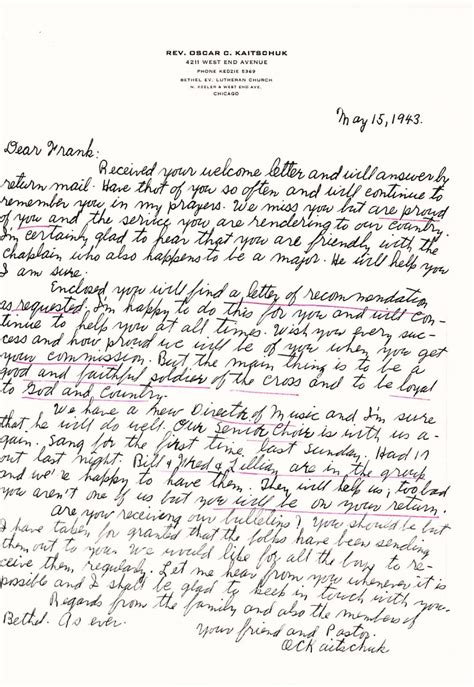 REV. OSCAR C. KAITSCHUK
4211 WEST END AVENUE
PHONE KEDZIE 5369
BETHEL EV. LUTHERAN CHURCH
N. KEELER & WEST END AVE.
CHICAGO
May 15, 1943.
Dear Frank:
Received your welcome letter and will answer by
return mail. Have thot of you so often and will continue to
remember you in my prayers. We miss you but are proud
of you and the service you are rendering to our country.
I'm certainly glad to hear that you are friendly with the
chaplain who also happens to be a major. He will help you
I am sure.
Enclosed you will find a letter of recommendation
as requested. I'm happy to do this for you and will con-
tinue to help you at all times. Wish you every suc-
cess and how proud we will be of you when you get
your commission. But the main thing is to be a
good and faithful soldier of the cross and to be loyal
to God and Country.
We have a new Director of Music and I'm sure
that he will do well. Our Senior Choir is with us a-
gain. Sang for the first time, last Sunday. Had 17
out last night. Bill & Fred & Lillian are in the group
and we're happy to have them. They will help us; too bad
you aren't one of us but you will be on your return.
Are you receiving our bulletins? You should be but
I have taken for granted that the folks have been sending
them out to you. We would like for all the boys to re-
ceive them regularly. Let me hear from you whenever it is
possible and I shall be glad to keep in touch with you.
Regards from the family and also the members of
Bethel. As ever.
Your friend and Pastor.
OCKaitschuk